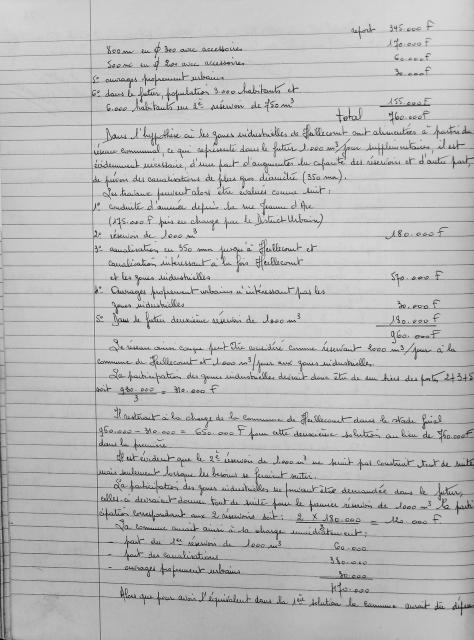 report 345.000 F
800 m en φ 300 avec accessoires 170.000 F
500 m en φ 200 avec accessoires 60.000 F
5° ouvrages proprement urbains 30.000 F
6° dans le futur, population 3.000 habitants et
6.000 habitants un 2è réservoir de 750 m³ 155.000 F
Total 760.000 F
Dans l'hypothèse où les zones industrielles de Heillecourt sont alimentées à partir du
réseau communal, ce qui représente dans le futur 1.000 m³/jour supplémentaires, il est
évidemment nécessaire, d'une part d'augmenter la capacité des réservoirs et d'autre part,
de prévoir des canalisations de plus gros diamètre (350 mm).
Les travaux peuvent alors être évalués comme suit :
1° conduite d'amenée depuis la rue Jeanne d'Arc
(175.000 F pris en charge par le District Urbain)
2° réservoir de 1000 m³ 180.000 F
3° canalisation en 350 mm jusqu'à Heillecourt et
canalisation intéressant à la fois Heillecourt
et les zones industrielles 570.000 F
4° Ouvrages proprement urbains n'intéressant pas les
zones industrielles 30.000 F
5° Dans le futur deuxième réservoir de 1000 m³ 180.000 F
960.000 F
Le réseau ainsi conçu peut être considéré comme réservant 2000 m³/jour à la
commune de Heillecourt et 1000 m³/jour aux zones industrielles.
La participation des zones industrielles devrait donc être de un tiers des postes 2+3+5
soit 930.000 / 3 = 310.000 F
Il resterait à la charge de la commune de Heillecourt dans le stade final
960.000 - 310.000 = 650.000 F pour cette deuxième solution au lieu de 760.000 F
dans la première.
Il est évident que le 2è réservoir de 1000 m³ ne serait pas construit tout de suite
mais seulement lorsque les besoins se feraient sentir.
La participation des zones industrielles ne pouvant être demandée dans le futur,
celles-ci devraient donner tout de suite pour le premier réservoir de 1000 m³ la partici-
pation correspondant aux 2 réservoirs soit : 2 x 180.000 / 3 = 120.000 F
La commune aurait ainsi à sa charge immédiatement :
- part du 1er réservoir de 1000 m³ 60.000
- part des canalisations 380.000
- ouvrages proprement urbains 30.000
470.000
Alors que pour avoir l'équivalent dans la 1ère solution la commune aurait dû